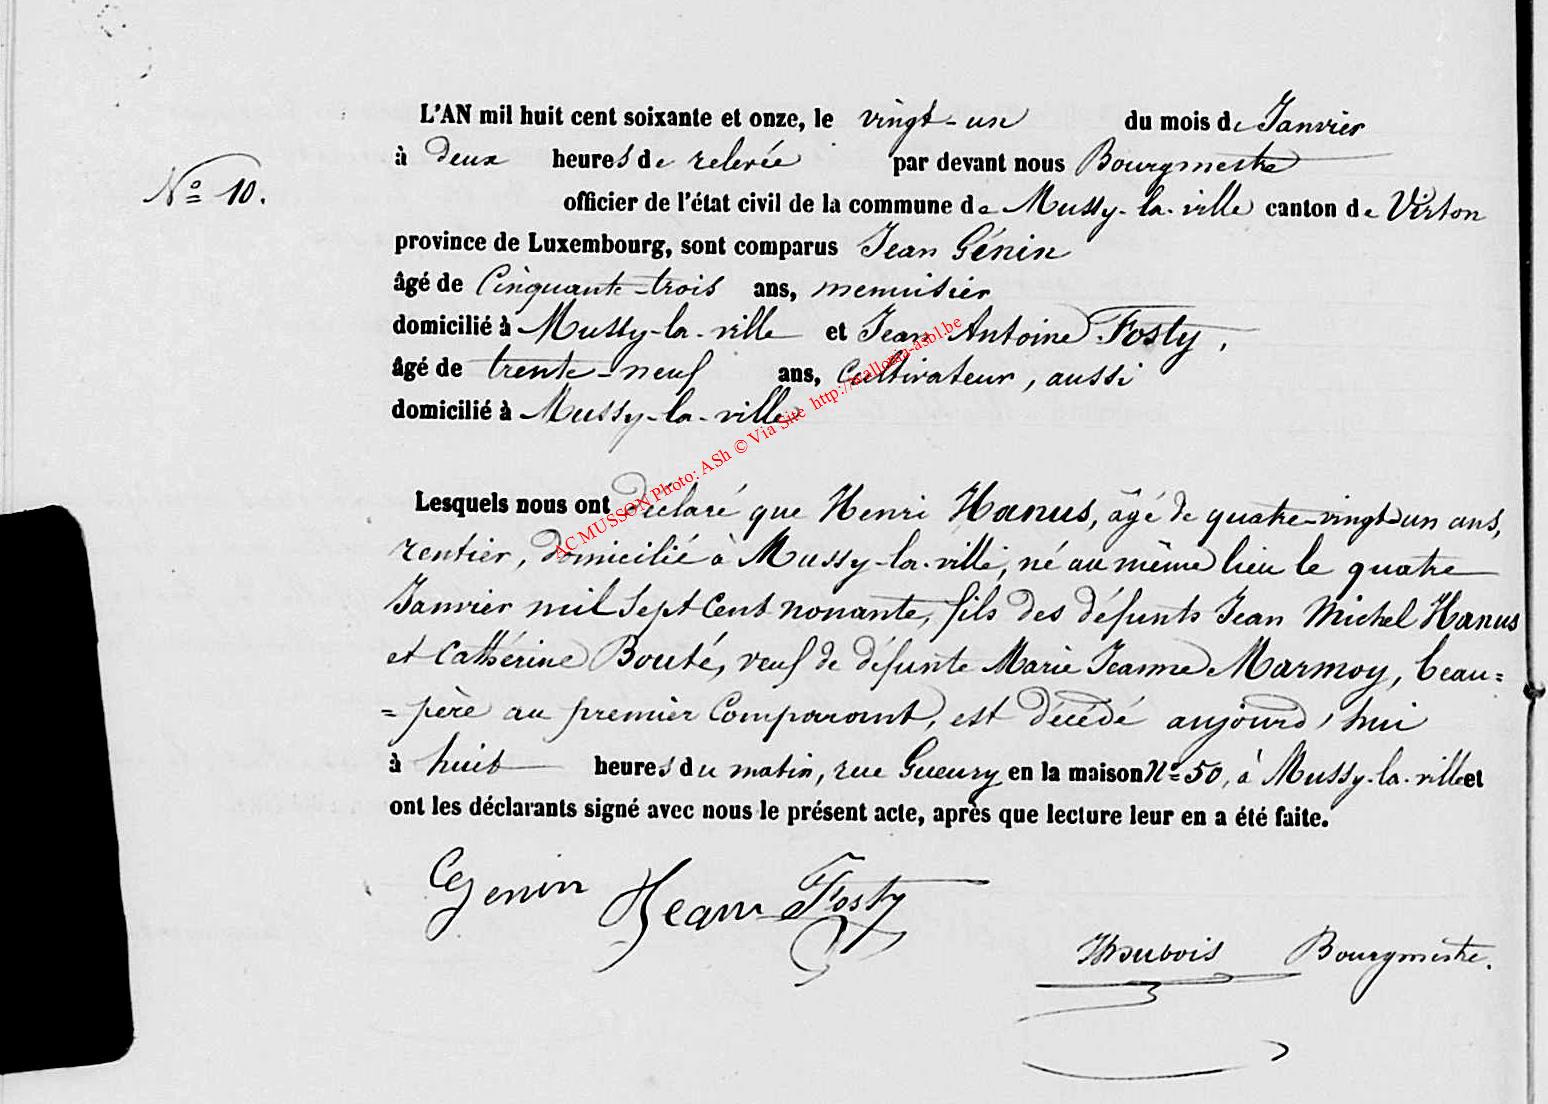 L'AN mil huit cent soixante et onze, le vingt-un du mois de Janvier
à deux heures de relevée par devant nous Bourgmestre
N° 10.
officier de l'état civil de la commune de Mussy-la-ville canton de Virton
province de Luxembourg, sont comparus Jean Génin
âgé de Cinquante-trois ans, menuisier
domicilié à Mussy-la-ville et Jean Antoine Fosty,
âgé de trente-neuf ans, Cultivateur, aussi
domicilié à Mussy-la-ville
AC MUSSON Photo: ASh © Via Site http://wallonia-asbl.be
Lesquels nous ont déclaré que Henri Hanus, âgé de quatre-vingt-un ans,
rentier, domicilié à Mussy-la-ville, né au même lieu le quatre
Janvier mil sept Cent nonante, fils des défunts Jean Michel Hanus
et Cathérine Bouté, veuf de défunte Marie Jeanne Marmoy, beau=
=père au premier Comparant, est décédé aujourd'hui
à huit heures du matin, rue Gueury en la maison N° 50, à Mussy-la-ville et
ont les déclarants signé avec nous le présent acte, après que lecture leur en a été faite.
genin Jean Fosty
Dubois Bourgmestre.